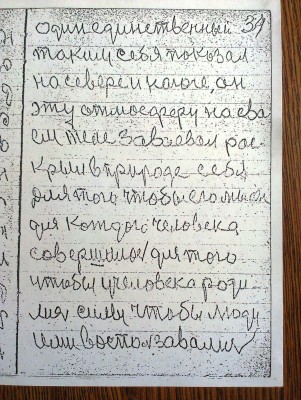 один единственный 34
таким себя показал
на севере и на юге, он
эту атмосферу на сва
ём теле завоевал рас
крыл в природе себя,
для того чтобы его мысл
для каждого человека
совершилось для того
чтобы у человека роди
лися силы чтобы люди
ими воспользавались